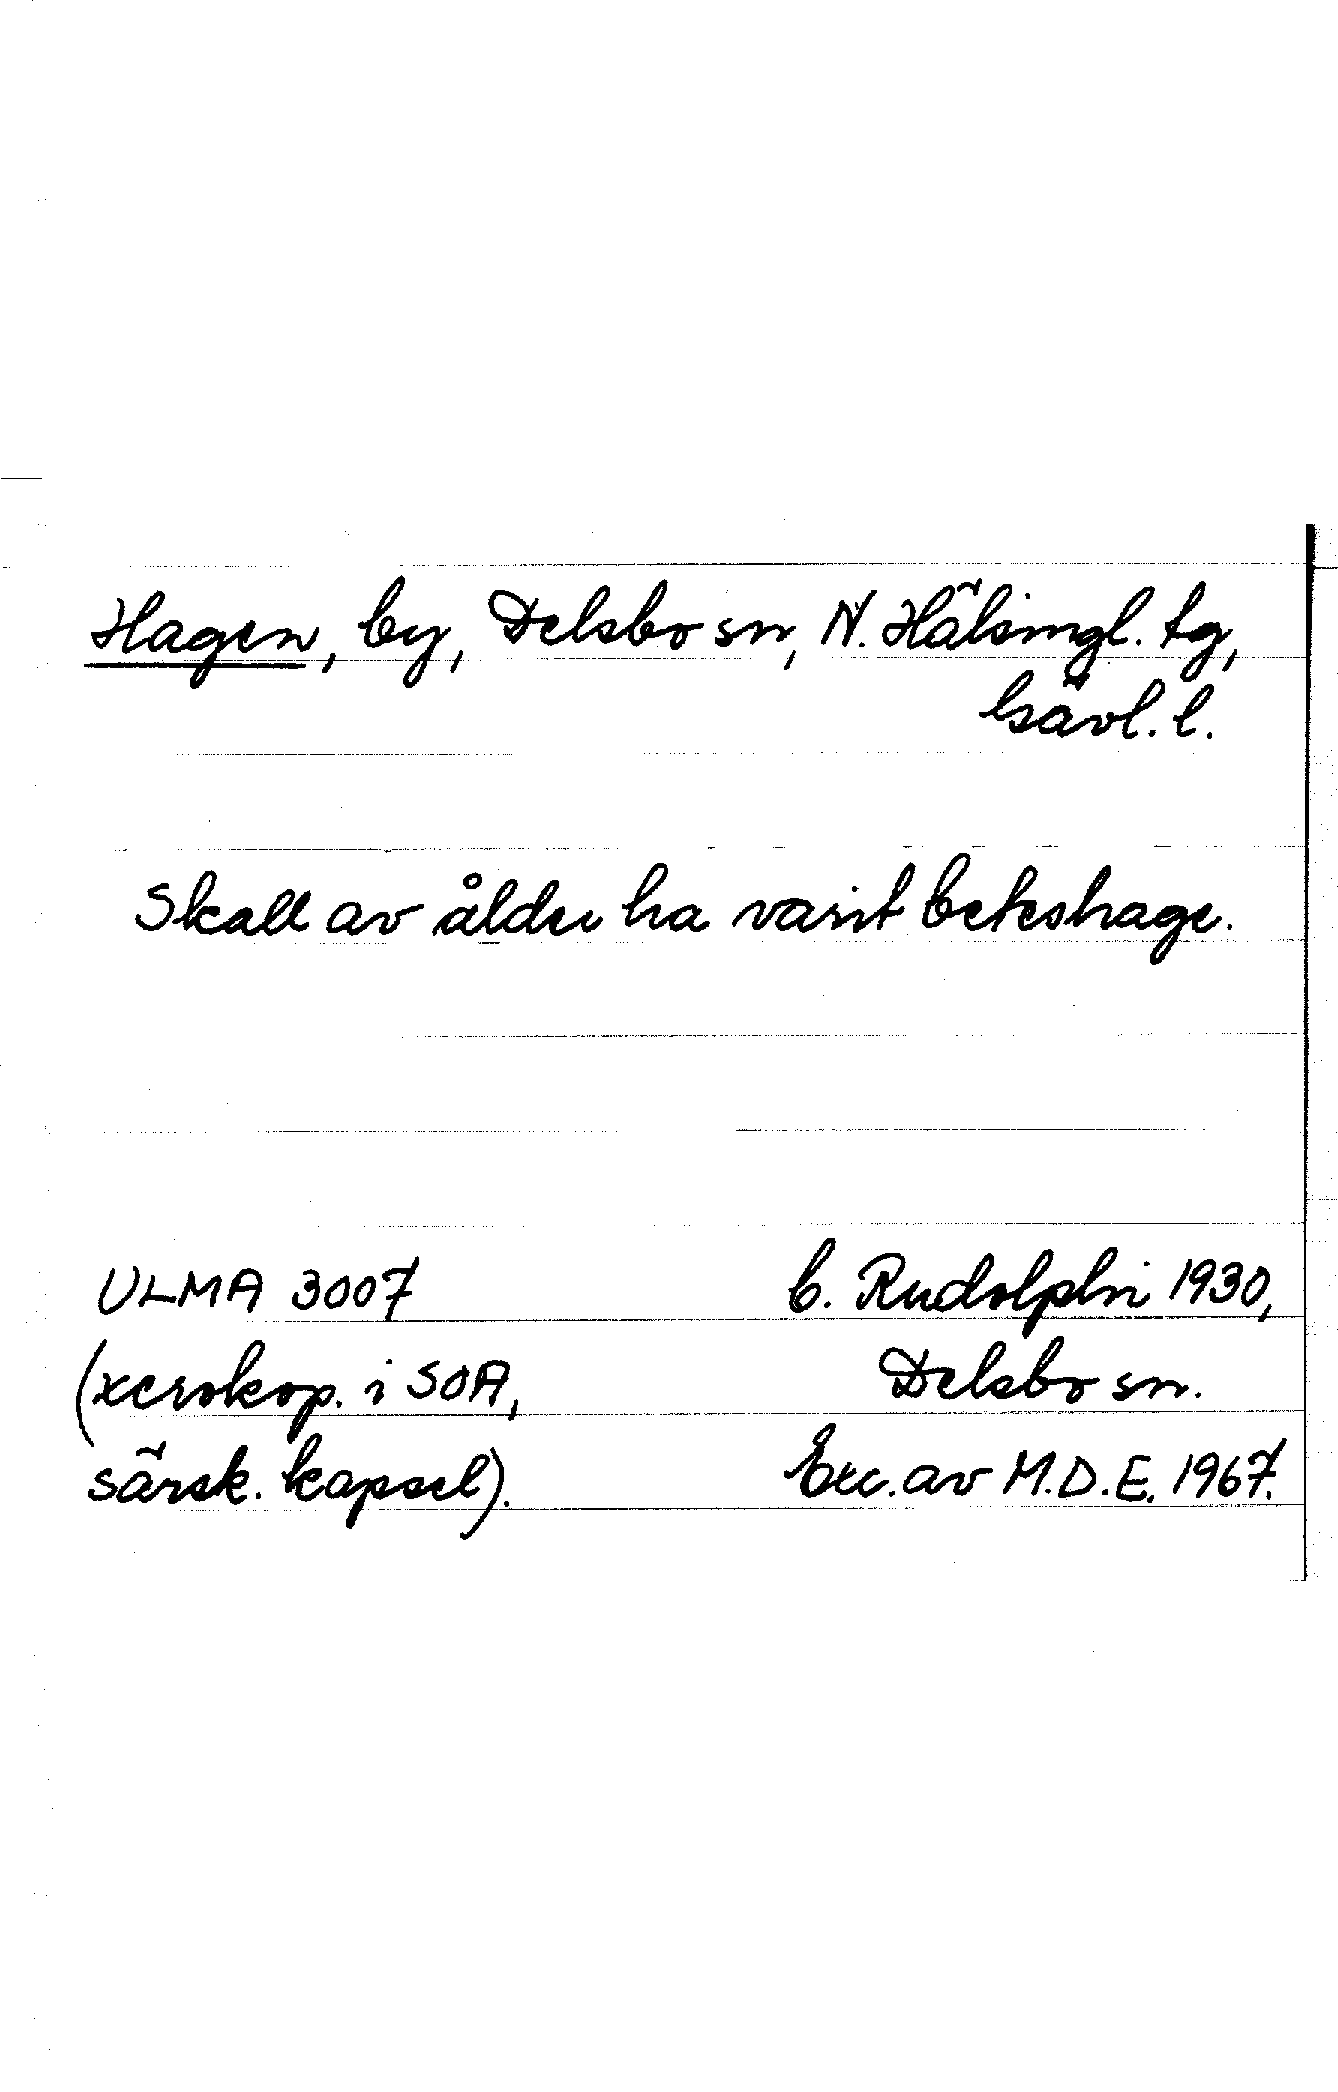 Hagen, by, Delsbo sn, N. Hälsingl. tg,
Gävl. l.
Skall av ålder ha varit beteshage.
ULMA 3007 C. Rudolphi 1930,
(xerokop. i SOA, Delsbo sn.
särsk. kapsel). Exc. av M.D.E. 1967.